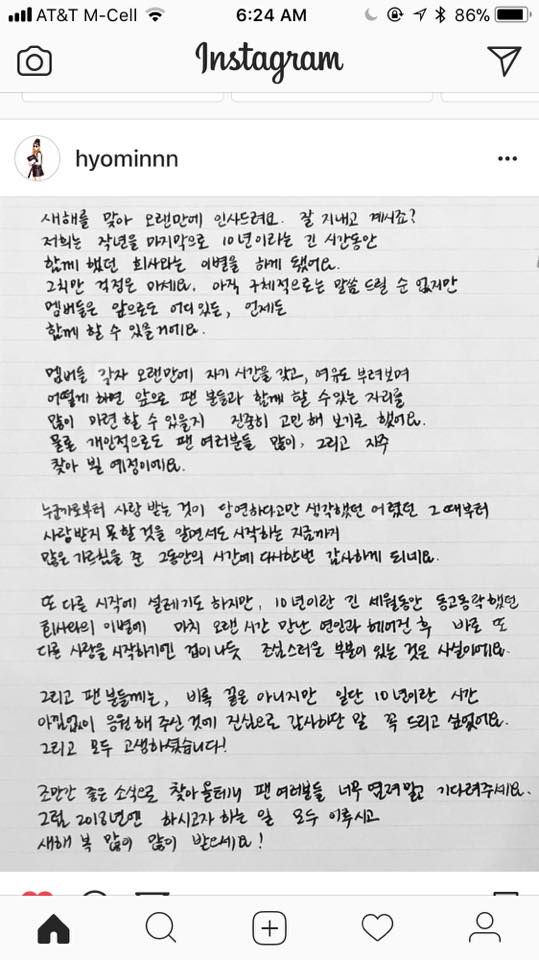 AT&T M-Cell 6:24 AM 86%
Instagram
hyominnn
새해를 맞아 오랜만에 인사드려요. 잘 지내고 계시죠?
저희는 작년을 마지막으로 10년이라는 긴 시간동안
함께 했던 회사와는 이별을 하게 됐어요.
그치만 걱정은 마세요. 아직 구체적으로는 말씀 드릴 순 없지만
멤버들은 앞으로도 어디 있든, 언제든
함께 할 수 있을 거에요.
멤버들 각자 오랜만에 자기 시간을 갖고, 여유도 부려보며
어떻게 하면 앞으로 팬 분들과 함께 할 수 있는 자리를
많이 마련 할 수 있을지 진중히 고민 해 보기로 했어요.
물론 개인적으로도 팬 여러분들 많이, 그리고 자주
찾아 뵐 예정이에요.
누군가로부터 사랑 받는 것이 당연하다고만 생각했던 어렸던 그 때부터
사랑받지 못 할 것을 알면서도 시작하는 지금까지
많은 가르침을 준 그동안의 시간에 다시한번 감사하게 되네요.
또 다른 시작에 설레기도 하지만, 10년이란 긴 세월동안 동고동락 했던
회사와의 이별에 마치 오랜 시간 만난 연인과 헤어진 후 바로 또
다른 사랑을 시작하기엔 겁이 나듯 조심스러운 부분이 있는 것은 사실이에요.
그리고 팬 분들께는, 비록 끝은 아니지만 일단 10년이란 시간
아낌없이 응원 해 주신 것에 진심으로 감사하단 말 꼭 드리고 싶었어요.
그리고 모두 고생하셨습니다!
조만간 좋은 소식으로 찾아 올테니 팬 여러분들 너무 염려 말고 기다려주세요.
그럼 2018년엔 하시고자 하는 일 모두 이루시고
새해 복 많이 많이 받으세요!